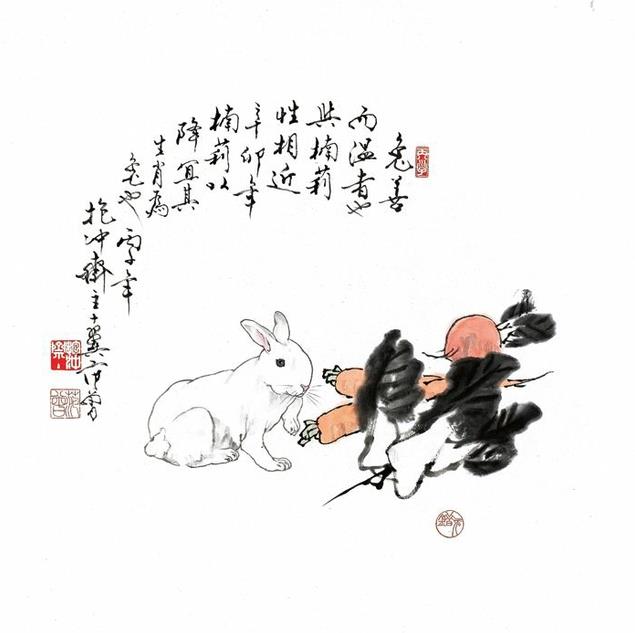 兔善
而温者也
與楠莉
性相近
辛卯年
楠莉以
降宜其
生肖爲
兔也 年
抱冲齋主十翼范曾